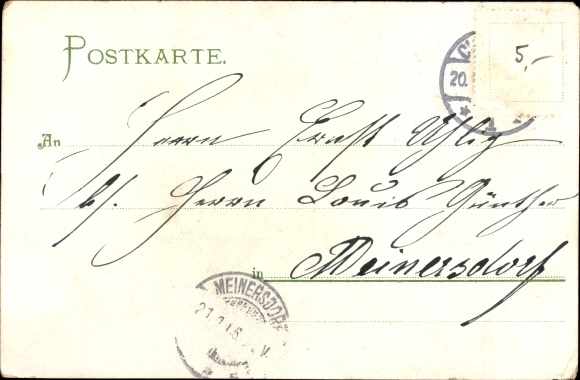 POSTKARTE.
5,-
20.
An Herrn Ernst Uhlig
b/. Herrn Louis Günther
in Meinersdorf
MEINERSDORF
21.1.
V.